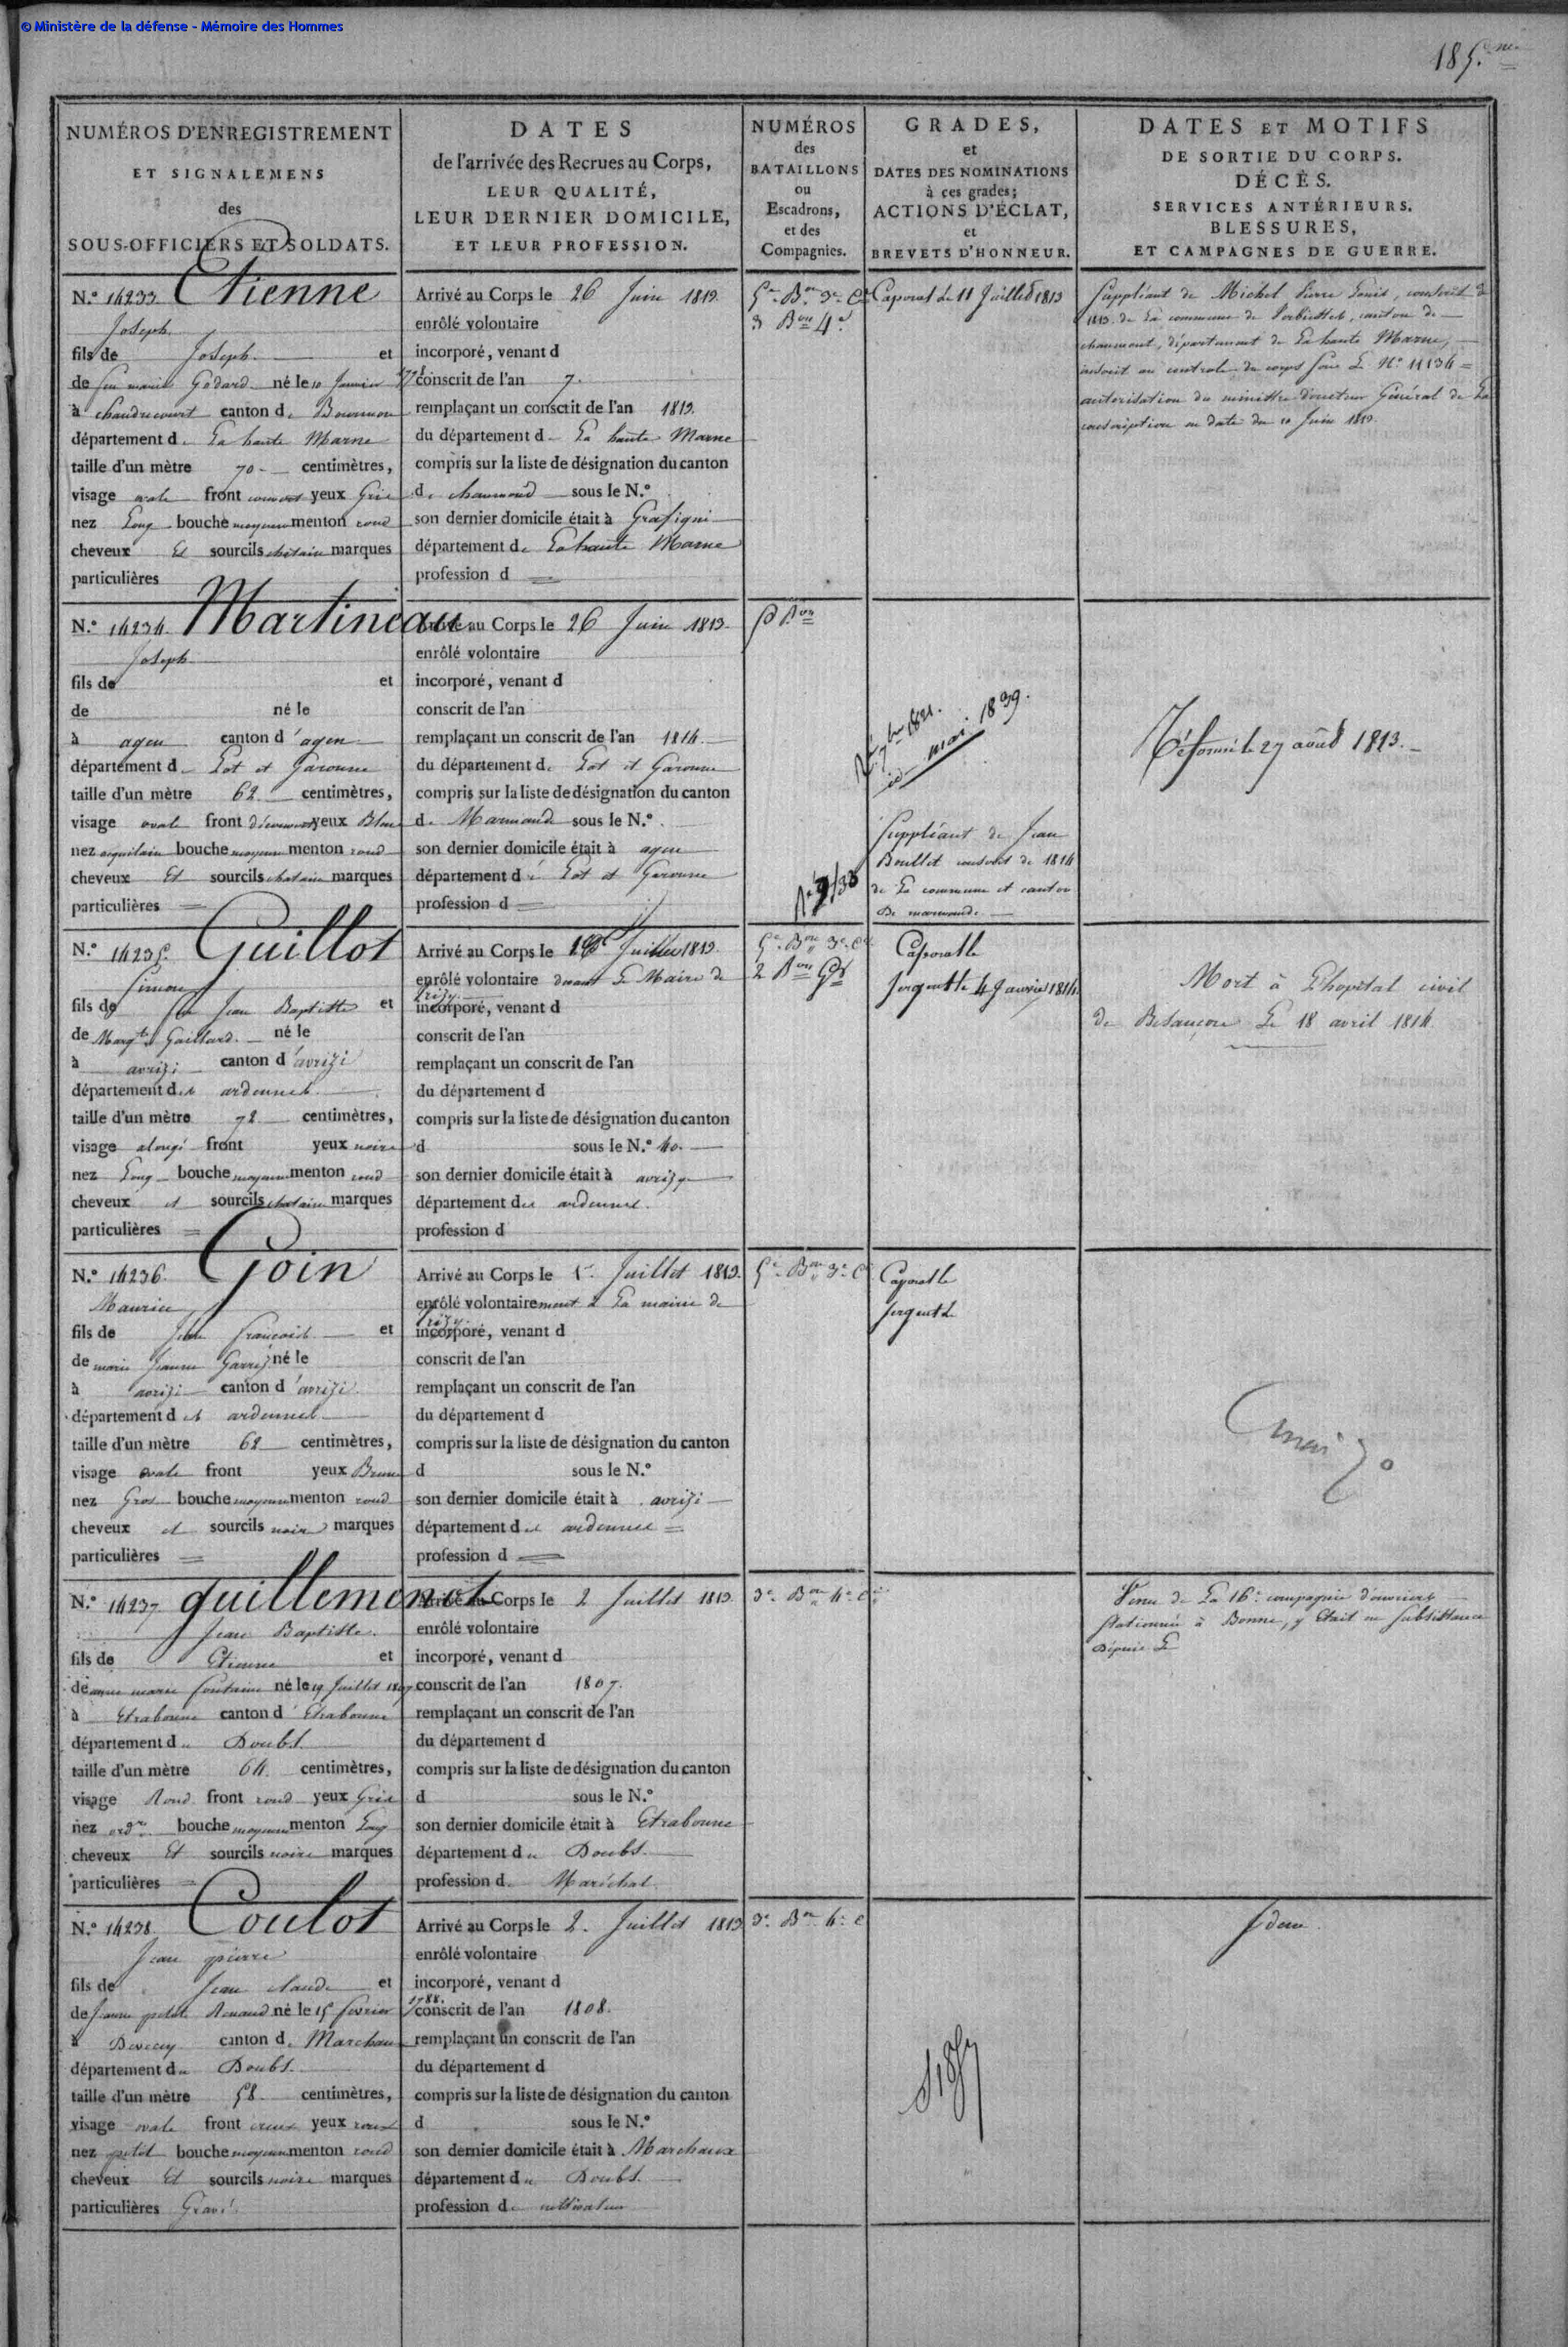 © Ministère de la défense - Mémoire des Hommes
185.me
NUMÉROS D'ENREGISTREMENT
ET SIGNALEMENS
des
SOUS-OFFICIERS ET SOLDATS.
DATES
de l'arrivée des Recrues au Corps,
LEUR QUALITÉ,
LEUR DERNIER DOMICILE,
ET LEUR PROFESSION.
NUMÉROS
des
BATAILLONS
ou
Escadrons,
et des
Compagnies.
GRADES,
et
DATES DES NOMINATIONS
à ces grades;
ACTIONS D'ÉCLAT,
et
BREVETS D'HONNEUR.
DATES ET MOTIFS
DE SORTIE DU CORPS.
DÉCÈS.
SERVICES ANTÉRIEURS,
BLESSURES,
ET CAMPAGNES DE GUERRE.
N.° 14233. Etienne
Joseph
fils de Joseph et
de feu marie Godard né le 10 Janvier
à chaudrecourt canton de Bourmon
département de La haute Marne
taille d'un mètre 70 centimètres,
visage ovale front couvert yeux Gris
nez Long bouche moyenne menton rond
cheveux Et sourcils chatain marques
particulières
Arrivé au Corps le 26 Juin 1813.
enrôlé volontaire
incorporé, venant d
conscrit de l'an 7.
remplaçant un conscrit de l'an 1813.
du département de La haute Marne
compris sur la liste de désignation du canton
de chaumond sous le N.°
son dernier domicile était à Grafigni
département de La haute Marne
profession d
5e. Bon. 3e. Cie
3 Bon 4e
Caporal le 11 Juillet 1813
Suppléant de Michel Pierre Louis, conscrit de
1813. de la commune de canton de
chaumont, département de La haute Marne,
inscrit au controle du corps sous Le N° 11134
autorisation du ministre directeur Général de La
conscription en date du 10 Juin 1813.
N.° 14234. Martineau
Joseph
fils de et
de né le
à agen canton d'agen
département de Lot et Garonne
taille d'un mètre 62 centimètres,
visage ovale front découvert yeux Bleu
nez aquilain bouche moyenne menton rond
cheveux Et sourcils chatain marques
particulières
Arrivé au Corps le 26 Juin 1813.
enrôlé volontaire
incorporé, venant d
conscrit de l'an
remplaçant un conscrit de l'an 1814.
du département de Lot et Garonne
compris sur la liste de désignation du canton
de Marmande sous le N.°
son dernier domicile était à agen
département de Lot et Garonne
profession d
7bre 1821.
id mai 1839.
Suppléant de Jean
Boullet conscrit de 1814
de La commune et canton
De marmande.
Réformé le 27 août 1813.
N.° 14235. Guillot
Simon
fils de feu Jean Baptiste et
de Margte Gaillard. né le
à avrizi canton d'avrizi
département des ardennes
taille d'un mètre 72 centimètres,
visage alongé front yeux noirs
nez Long bouche moyenne menton rond
cheveux et sourcils chatain marques
particulières
Arrivé au Corps le Juillet 1813.
enrôlé volontaire devant Le Maire de
incorporé, venant d
conscrit de l'an
remplaçant un conscrit de l'an
du département d
compris sur la liste de désignation du canton
d sous le N.° 40.
son dernier domicile était à avrizy
département des ardennes.
profession d
5e. Bon 3e. Cie
2 Bon
Caporal le
Sergent le 4 Janvier 1814
Mort à L'hopital civil
de Besançon Le 18 avril 1814
N.° 14236. Goin
Maurice
fils de Jean françois et
de marie Jeanne né le
à avrizi canton d'avrizi
département des ardennes
taille d'un mètre 62 centimètres,
visage ovale front yeux Bruns
nez Gros bouche moyenne menton rond
cheveux et sourcils noirs marques
particulières
Arrivé au Corps le 1er Juillet 1813.
enrôlé volontairement à La mairie de
incorporé, venant d
conscrit de l'an
remplaçant un conscrit de l'an
du département d
compris sur la liste de désignation du canton
d sous le N.°
son dernier domicile était à avrizi
département des ardennes
profession d
5e. Bon 3e. Cie
Caporal le
Sergent le
N.° 14237. guillemenot
Jean Baptiste.
fils de Etienne et
de anne marie fontaine né le 19 Juillet
à Etrabonne canton d'Etrabonne
département du Doubs
taille d'un mètre 64. centimètres,
visage Rond front rond yeux Gris
nez ordre bouche moyenne menton Long
cheveux Et sourcils noirs marques
particulières
Arrivé au Corps le 2 Juillet 1813.
enrôlé volontaire
incorporé, venant d
conscrit de l'an 1807.
remplaçant un conscrit de l'an
du département d
compris sur la liste de désignation du canton
d sous le N.°
son dernier domicile était à Etrabonne
département du Doubs.
profession de Maréchal
3e. Bon 4e. Cie
Venu de La 16e. compagnie d'ouvriers
Stationnée à Bonne, y Etait en Subsistance
Depuis Le
N.° 14238. Coulot
Jean pierre
fils de Jean claude et
de Jeanne petite Renaud né le 15 fevrier 1788.
à Devecey canton de Marchaux
département du Doubs.
taille d'un mètre 58. centimètres,
visage ovale front creux yeux roux
nez petit bouche moyenne menton rond
cheveux Et sourcils noirs marques
particulières Gravé
Arrivé au Corps le 2. Juillet 1813
enrôlé volontaire
incorporé, venant d
conscrit de l'an 1808.
remplaçant un conscrit de l'an
du département d
compris sur la liste de désignation du canton
d sous le N.°
son dernier domicile était à Marchaux
département du Doubs.
profession de cultivateur
3e. Bon 4e. C
Idem